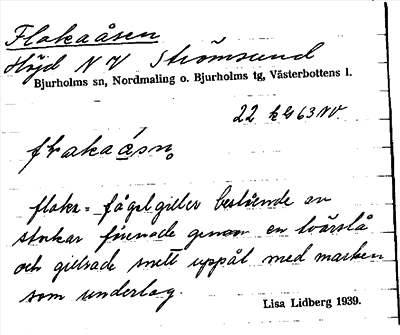 Flakaåsen
Höjd NV Strömsund
Bjurholms sn, Nordmaling o. Bjurholms tg, Västerbottens l.
22 k G 63 NV
flakaåsn
flake = fågelgiller bestående av
stockar förenade genom en tvärslå
och gillrade snett uppåt med marken
som underlag.
Lisa Lidberg 1939.